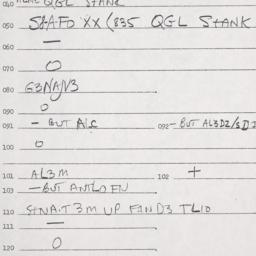 040 QGL STANK
050 STAFD XX (835 QGL STANK
—
060 O
070
080 G3NAJV3
090 O
091 — BUT ALC 092 — BUT AL3DZ/SDI
100 O
101 AL3M 102 +
103 — BUT ANTLO FN
110 STNAT3M UP FIND3 TLIO
111 —
120 O